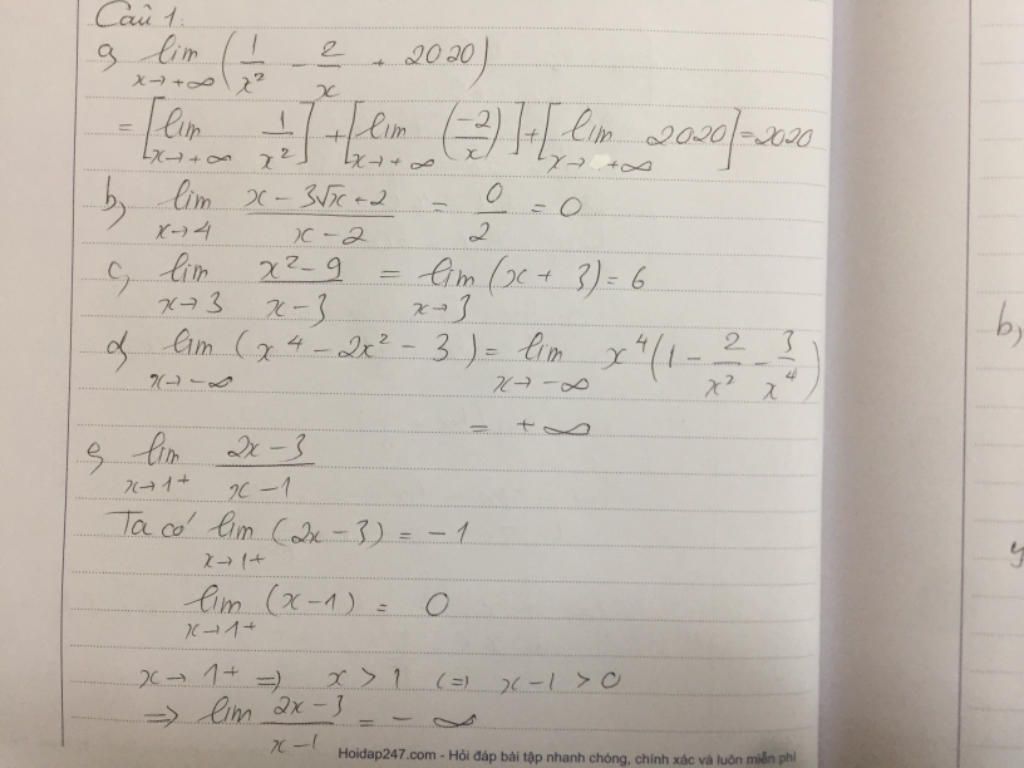 Câu 1:
a, lim x→+∞ (1/x² - 2/x + 2020)
= [lim x→+∞ 1/x²] + [lim x→+∞ (-2/x)] + [lim x→+∞ 2020] = 2020
b, lim x→4 (x - 3√x + 2)/(x - 2) = 0/2 = 0
c, lim x→3 (x² - 9)/(x - 3) = lim x→3 (x + 3) = 6
d, lim x→-∞ (x⁴ - 2x² - 3) = lim x→-∞ x⁴(1 - 2/x² - 3/x⁴)
= +∞
e, lim x→1+ (2x - 3)/(x - 1)
Ta có lim x→1+ (2x - 3) = -1
lim x→1+ (x - 1) = 0
x → 1+ => x > 1 <=> x - 1 > 0
=> lim (2x - 3)/(x - 1) = -∞
b,
y
Hoidap247.com - Hỏi đáp bài tập nhanh chóng, chính xác và luôn miễn phí